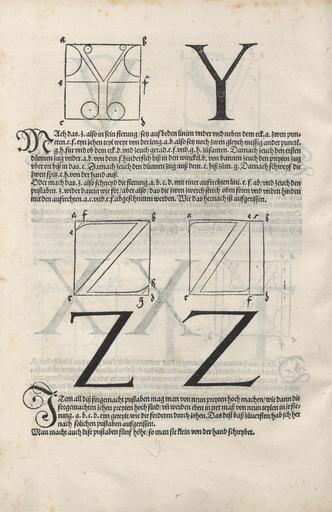 a b
e f
c d
Y
Mach das .z. also in sein fierung / setz auf beden linien vnder vnd neben dem eck .a. zwen pun-
cten .e.f. eyn zehen teyl weyt von der leng .a.b. also setz noch zwen gleych messig ander punckt
.g.h. für vnd ob dem eck .d. vnd zeuch gerad .e.f. vnd .g.h. züsamen. Darnach zeuch den ersten
dünnen zug vnder .a.b. von dem .f. hindersich biß in den winckel .b. von dannen zeuch den preyten zug
vber ort biß in das .c. Darnach zeuch den dünnen zug auß dem .c. biß zům .g. Darnach schweyf die
zwen spitz .e.h. von der hand auß.
Oder mach das .z. also schneyd die fierung .a.b.c.d. mit einer aufrechten lini .e.f. ab / vnd zeuch den
půstaben .z. wider darein wie for / aber also / das die zwen schweyf spitz oben forn vnd vnden hinden
mit den aufrechten .a.c. vnd .e.f. abgeschnitten werden. Wie das hernach ist aufgerissen.
a f b
e h
c g d
a e b
c f d
Z Z
Item all diß forgemacht půstaben mag man von neun preyten hoch machen / wie dann die
forgemachten zehen preyten hoch sind / vñ werden eben in irer maß von neun teylen in je fie-
rung .a.b.c.d. eyn geteylt wie die forderen durch zehen. Das dest baß zůuersten / hab ich her
nach solichen půstaben aufgerissen.
Man macht auch dise půstaben fünf höhe / so man sie klein von der hand schreybet.